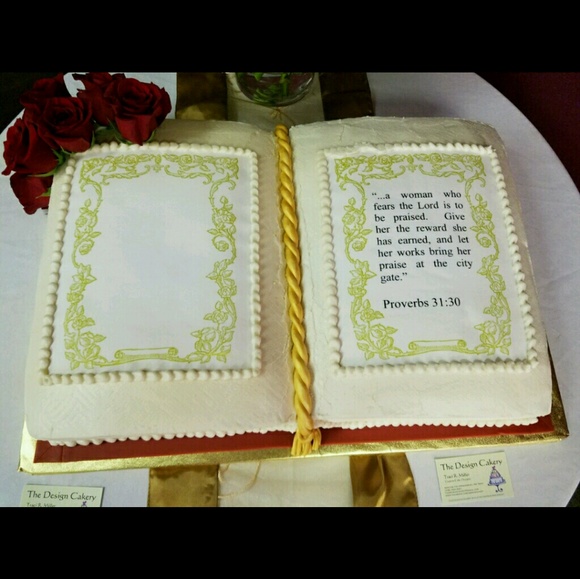 “...a woman who
fears the Lord is to
be praised. Give
her the reward she
has earned, and let
her works bring her
praise at the city
gate.”
Proverbs 31:30
The Design Cakery
The Design Cakery